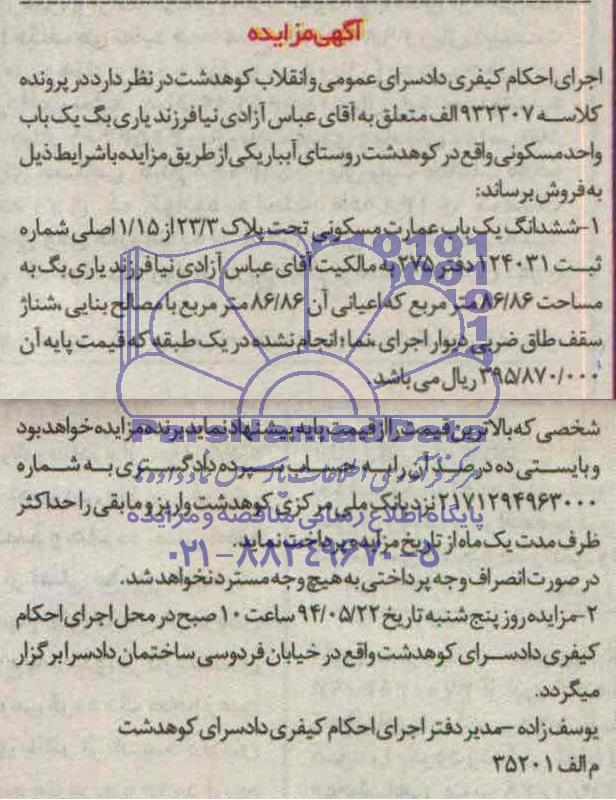 آگهی مزایده
اجرای احکام کیفری دادسرای عمومی و انقلاب کوهدشت در نظر دارد در پرونده
کلاسه ۹۳۲۳۰۷ الف متعلق به آقای عباس آزادی نیا فرزند یاری بگ یک باب
واحد مسکونی واقع در کوهدشت روستای آبباریکی از طریق مزایده با شرایط ذیل
به فروش برساند:
۱-ششدانگ یک باب عمارت مسکونی تحت پلاک ۲۳/۳ از ۱/۱۵ اصلی شماره
ثبت ۱۲۴۰۳۱ دفتر ۲۷۵ به مالکیت آقای عباس آزادی نیا فرزند یاری بگ به
مساحت ۸۶/۸۶ متر مربع که اعیانی آن ۸۶/۸۶ متر مربع با مصالح بنایی ،شناژ
سقف طاق ضربی دیوار اجرای ،نما؛ انجام نشده در یک طبقه که قیمت پایه آن
۳۹۵/۸۷۰/۰۰۰ ریال می باشد.
شخصی که بالاترین قیمت را از قیمت پایه پیشنهاد نماید برنده مزایده خواهد بود
و بایستی ده درصد آن را به حساب سپرده دادگستری به شماره
۲۱۷۱۲۹۴۹۶۳۰۰۰ نزد بانک ملی مرکزی کوهدشت واریز و مابقی را حداکثر
ظرف مدت یک ماه از تاریخ مزایده پرداخت نماید.
در صورت انصراف وجه پرداختی به هیچ وجه مسترد نخواهد شد.
۲-مزایده روز پنج شنبه تاریخ ۹۴/۰۵/۲۲ ساعت ۱۰ صبح در محل اجرای احکام
کیفری دادسرای کوهدشت واقع در خیابان فردوسی ساختمان دادسرا برگزار
میگردد.
یوسف زاده -مدیر دفتر اجرای احکام کیفری دادسرای کوهدشت
م الف ۳۵۲۰۱
ParsNamadData
مرکز آوری اطلاعات پارس نماد داده ها
پایگاه اطلاع رسانی مناقصه و مزایده
۰۲۱-۸۸۳۴۹۶۷۰-۵